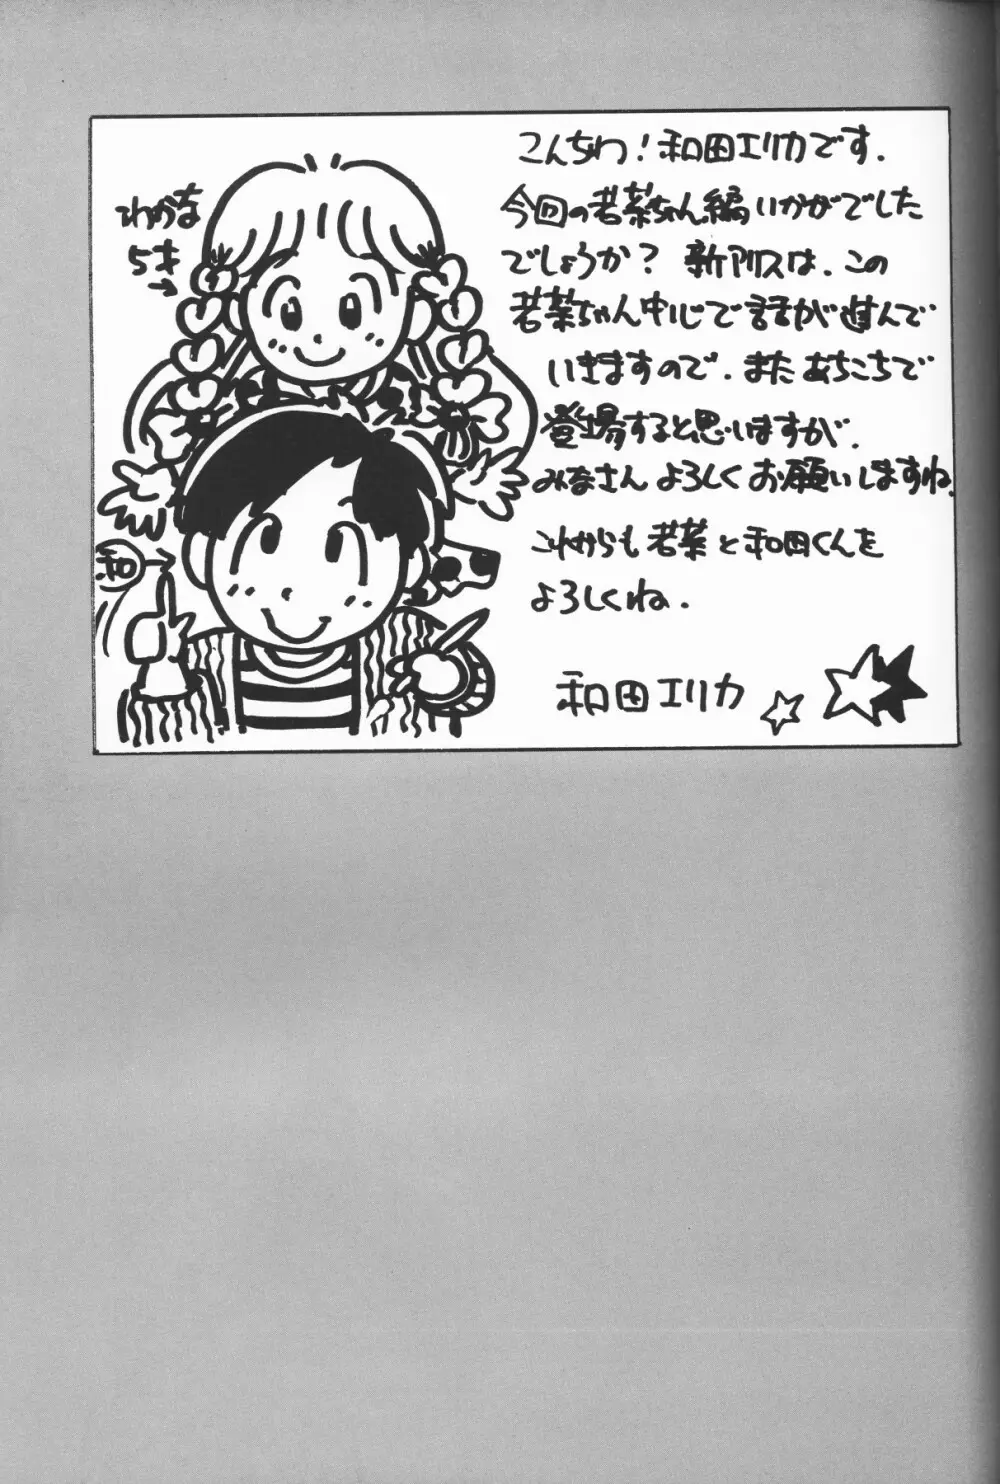 こんちわ！和田エリカです．
今回の若菜ちゃん編いかがでした
でしょうか？ 新アリスは、この
若菜ちゃん中心で話が進んで
いきますので、またあちこちで
登場すると思いますが、
みなさんよろしくお願いしますね．
これからも若菜と和田くんを
よろしくね．
和田エリカ
わかな
5才
和